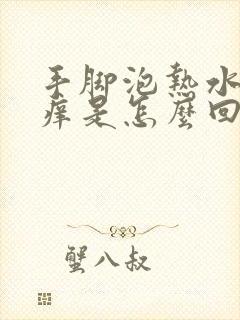 手脚泡热水
痒是怎麼回
蟹八叔